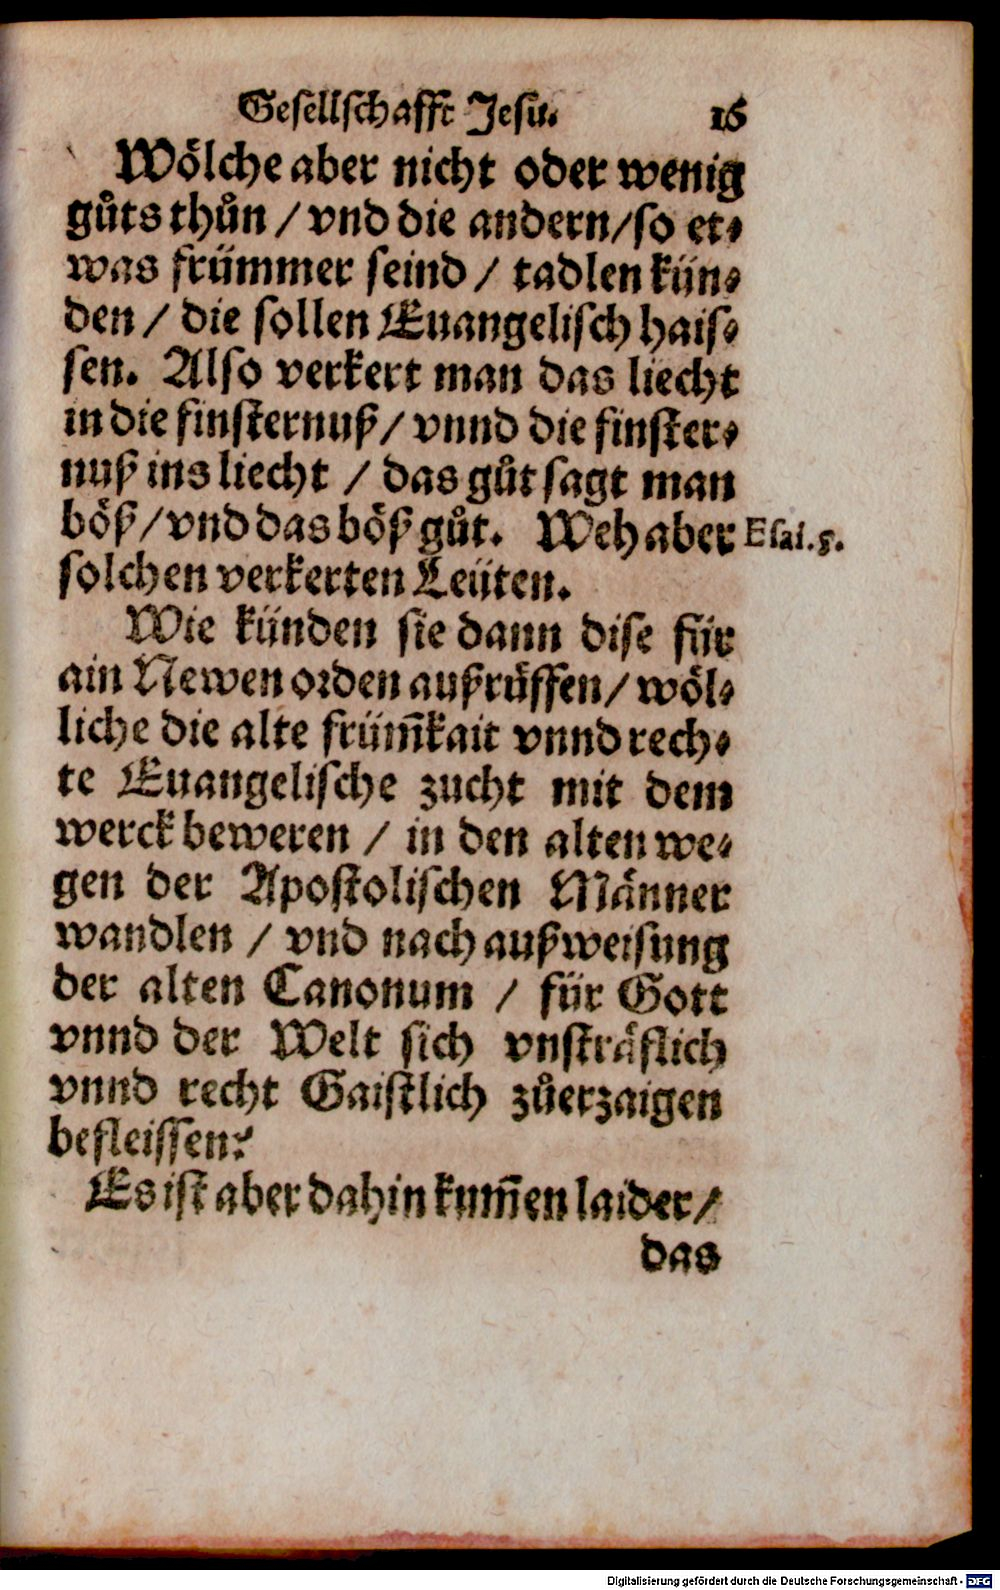 Gesellschafft Jesu. 16
Wölche aber nicht oder wenig
gůts thůn / vnd die andern / so et⸗
was frümmer seind / tadlen kün⸗
den / die sollen Euangelisch hais⸗
sen. Also verkert man das liecht
in die finsternuß / vnnd die finster⸗
nuß ins liecht / das gůt sagt man
böß / vnd das böß gůt. Weh aber Esai. 5.
solchen verkerten Leüten.
Wie künden sie dann dise für
ain Newen orden außrůffen / wöl⸗
liche die alte frům̄kait vnnd rech⸗
te Euangelische zucht mit dem
werck beweren / in den alten we⸗
gen der Apostolischen Männer
wandlen / vnd nach außweisung
der alten Canonum / für Gott
vnnd der Welt sich vnsträflich
vnnd recht Gaistlich zůerzaigen
befleissen?
Es ist aber dahin kum̄en laider /
das
Digitalisierung gefördert durch die Deutsche Forschungsgemeinschaft - DFG